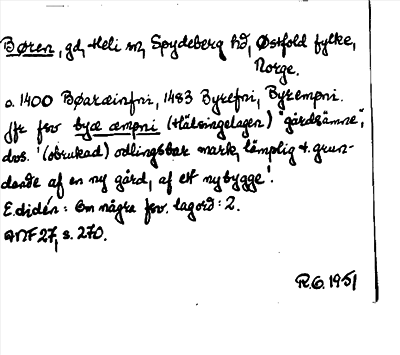 Børen, gd, Heli sn, Spydeberg hd, Østfold fylke,
Norge.
o. 1400 Bøaræinfni, 1483 Byrefni, Byrempni.
Jfr fsv byæ æmpni (Hälsingelagen) "gårdsämne",
dvs. '(obrukad) odlingsbar mark, lämplig t. grun-
dande af en ny gård, af ett nybygge'.
E. Lidén: Om några fsv. lagord: 2.
ANF 27, s. 270.
R.O. 1951